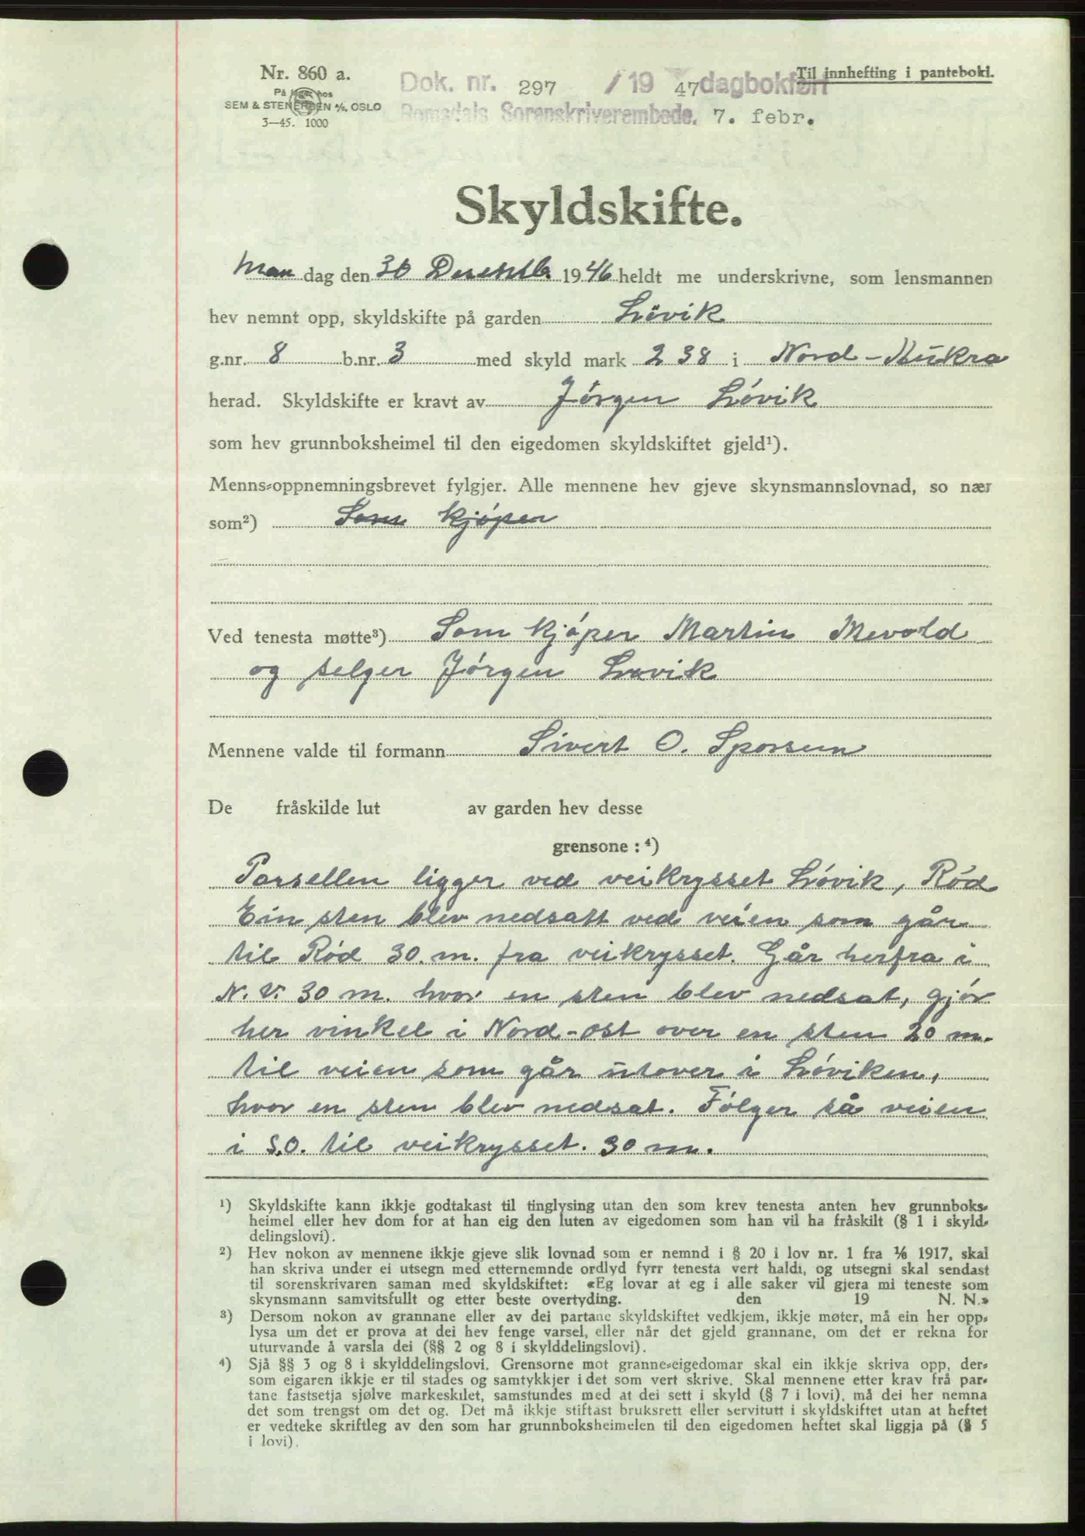 Nr. 860 a.
Til innhefting i pantebok1.
Dok. nr. 297 /19 47 dagbokført
På hos
SEM & STENERSEN A/S, OSLO
Romsdals Sorenskriverembede, 7. febr.
3—45. 1000
Skyldskifte.
Man dag den 30 Desemb. 1946 heldt me underskrivne, som lensmannen
hev nemnt opp, skyldskifte på garden Lövik
g.nr. 8 b.nr. 3 med skyld mark 2 38 i Nord-Aukra
herad. Skyldskifte er kravt av Jörgen Lövik
som hev grunnboksheimel til den eigedomen skyldskiftet gjeld¹).
Menns-oppnemningsbrevet fylgjer. Alle mennene hev gjeve skynsmannslovnad, so nær
som²) Som kjöper
Ved tenesta møtte³) Som kjöper Martin Mevold
og selger Jörgen Lövik
Mennene valde til formann Sivert O. Sporsem
De fråskilde lut av garden hev desse
grensone : ⁴)
Parsellen ligger ved veikrysset Lövik, Röd
Ein sten blev nedsatt ved veien som går
til Röd 30. m. fra veikrysset. Går herfra i
N. V. 30 m. hvor en sten blev nedsat, gjör
her vinkel i Nord-ost over en sten 20 m.
til veien som går utover i Löviken,
hvor en sten blev nedsat. Fölger så veien
i S.O. til veikrysset. 30 m.
¹) Skyldskifte kann ikkje godtakast til tinglysing utan den som krev tenesta anten hev grunnboks-
heimel eller hev dom for at han eig den luten av eigedomen som han vil ha fråskilt (§ 1 i skyld-
delingslovi).
²) Hev nokon av mennene ikkje gjeve slik lovnad som er nemnd i § 20 i lov nr. 1 fra ⅙ 1917, skal
han skriva under ei utsegn med etternemnde ordlyd fyrr tenesta vert haldi, og utsegni skal sendast
til sorenskrivaren saman med skyldskiftet: «Eg lovar at eg i alle saker vil gjera mi teneste som
skynsmann samvitsfullt og etter beste overtyding. den 19 N. N.»
³) Dersom nokon av grannane eller av dei partane skyldskiftet vedkjem, ikkje møter, må ein her opp-
lysa um det er prova at dei hev fenge varsel, eller når det gjeld grannane, om det er rekna for
uturvande å varsla dei (§§ 2 og 8 i skylddelingslovi).
⁴) Sjå §§ 3 og 8 i skylddelingslovi. Grensorne mot granne-eigedomar skal ein ikkje skriva opp, der-
som eigaren ikkje er til stades og samtykkjer i det som vert skrive. Skal mennene etter krav frå par-
tane fastsetja sjølve markeskilet, samstundes med at dei sett i skyld (§ 7 i lovi), må dei her nemna
det som trengst om det og. Det må ikkje stiftast bruksrett eller servitutt i skyldskiftet utan at heftet
er vedteke skriftleg av den som har grunnboksheimelen til den eigedomen heftet skal liggja på (§ 5
i lovi).